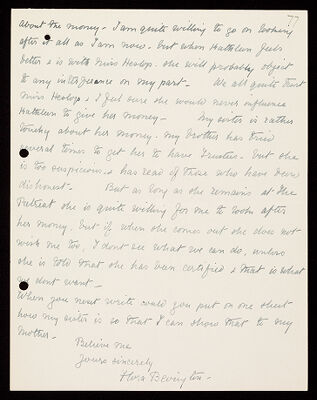 77
about the money. I am quite willing to go on looking
after it all as I am now. but when Kathleen feels
better & is with Miss Heslop. she will probably object
to any interference on my part - We all quite trust
Miss Heslop. & I feel sure she would never influence
Kathleen to give her money - My sister is rather
touchy about her money. my brother has tried
several times to get her to have Trustees. but she
is too suspicious. & has read of those who have been
dishonest - But as long as she remains at the
Retreat she is quite willing for me to look after
her money, but if when she comes out she does not
wish me too, I dont see what we can do, unless
she is told that she has been certified & that is what
we dont want -
When you next write could you put on one sheet
how my sister is so that I can show that to my
Mother -
Believe me
Yours sincerely
Flora Bevington -